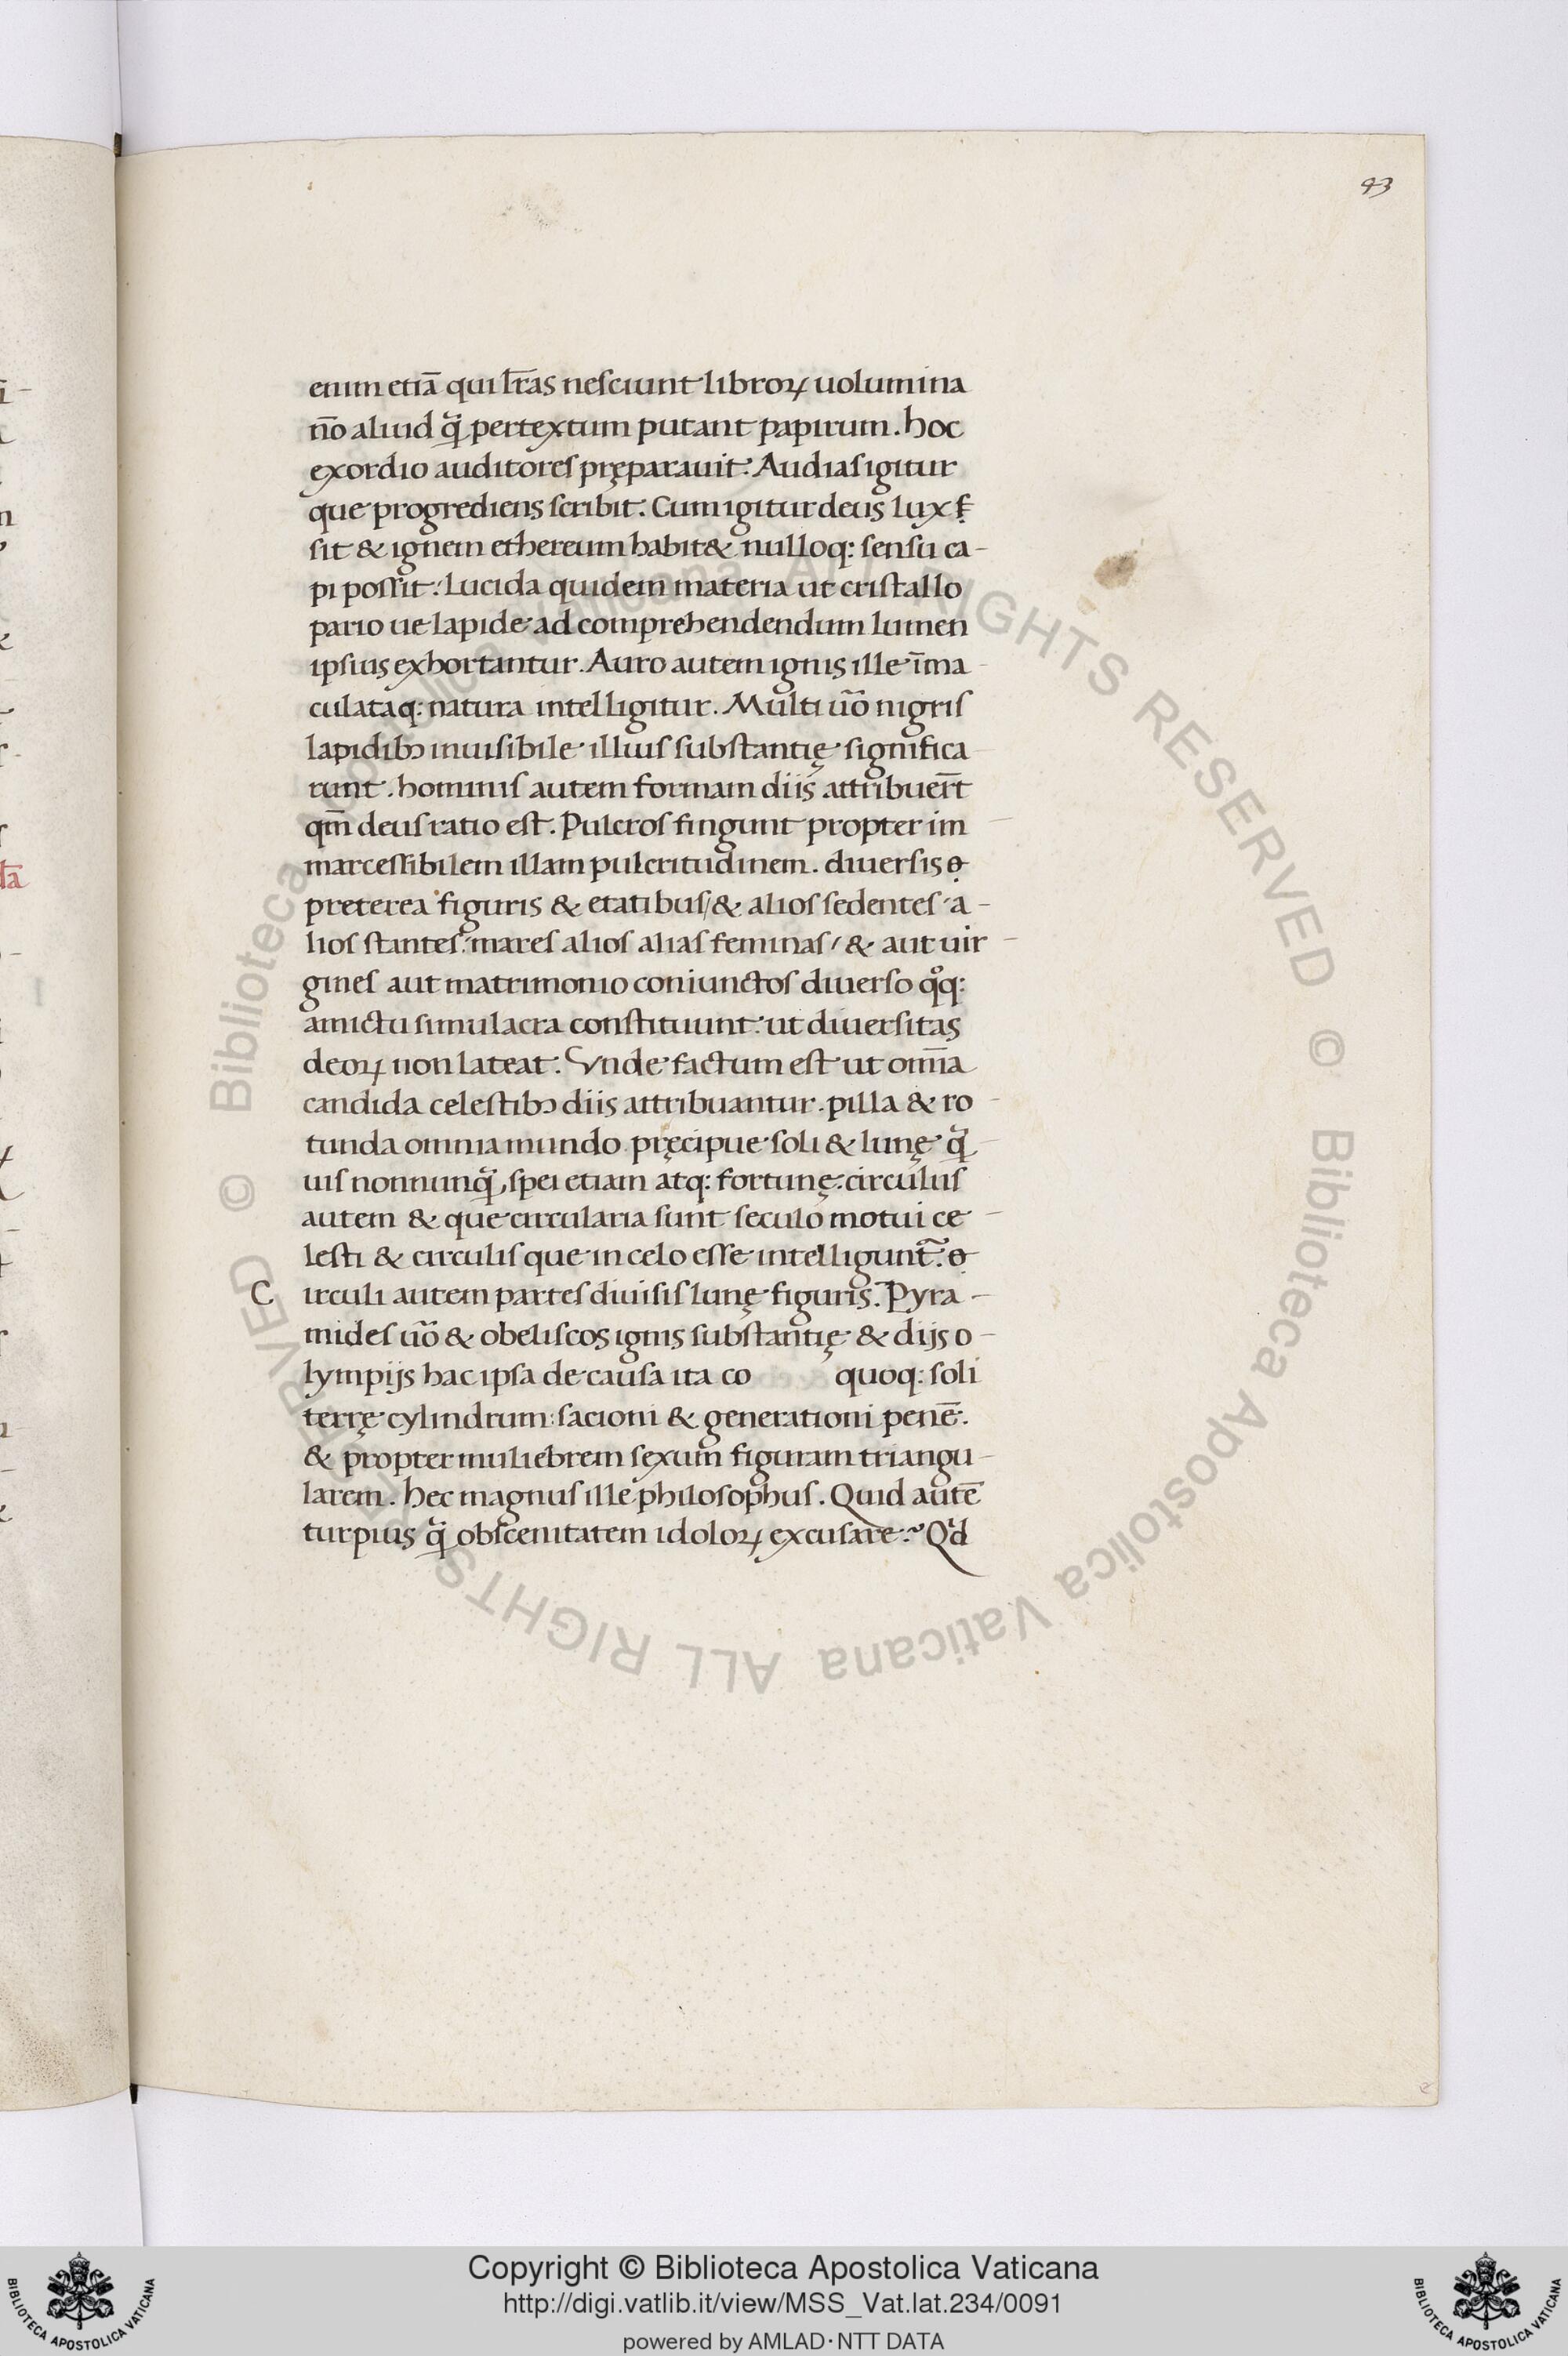 43
enim etiā qui lr̄as nesciunt libroꝝ uolumina
nō aliud q̄ꝫ pertextum putant papirum. hoc
exordio auditores pręparauit. Audias igitur
que progrediens scribit. Cum igitur deus lux
sit & ignem ethereum habit& nulloq: sensu ca-
pi possit: Lucida quidem materia ut cristallo
pario ue lapide ad comprehendendum lumen
ipsius exhortantur. Auro autem ignis ille īma
culataq: natura intelligitur. Multi uō nigris
lapidibꝫ inuisibile illius substantię significa
runt. hominis autem formam diis attribuer̄t
qm̄ deus ratio est. Pulcros fingunt propter im
marcessibilem illam pulcritudinem. diuersis
preterea figuris & etatibus/& alios sedentes a-
lios stantes. mares alios alias feminas/& aut uir
gines aut matrimonio coniunctos diuerso qͦq:
amictu simulacra constituunt. ut diuersitas
deoꝝ non lateat. Vnde factum est ut omīa
candida celestibꝫ diis attribuantur. pilla & ro
tunda omnia mundo pręcipue soli & lunę q̄ꝫ
uis nonnunq̄ꝫ, spei etiam atq: fortunę. circulus
autem & que circularia sunt seculo motui ce
lesti & circulis que in celo esse intelligunt̄.
C irculi autem partes diuisis lunę figuris. Pyra-
mides uō & obeliscos ignis substantię & dijs o-
lympijs hac ipsa de causa ita co quoq: soli
terrę cylindrum: sacioni & generationi penē.
& propter muliebrem sexum figuram triangu-
larem. hec magnus ille philosophus. Quid autē
turpius q̄ꝫ obscenitatem idoloꝝ excusare? Qd
Copyright © Biblioteca Apostolica Vaticana
http://digi.vatlib.it/view/MSS_Vat.lat.234/0091
powered by AMLAD·NTT DATA
BIBLIOTECA APOSTOLICA VATICANA
BIBLIOTECA APOSTOLICA VATICANA
© Biblioteca Apostolica Vaticana ALL RIGHTS RESERVED © Biblioteca Apostolica Vaticana ALL RIGHTS RESERVED